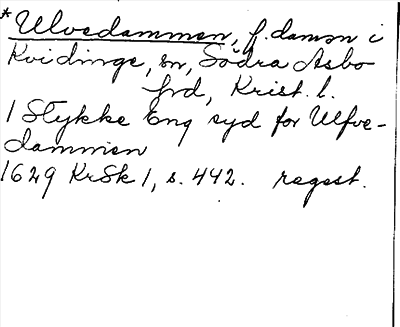 *Ulvedammen, f. damm i
Kvidinge, sn, Södra Åsbo
hrd, Krist. l.
1 Stykke Eng syd for Ulfve-
dammen
1629 KrSk 1, s. 442. regest.